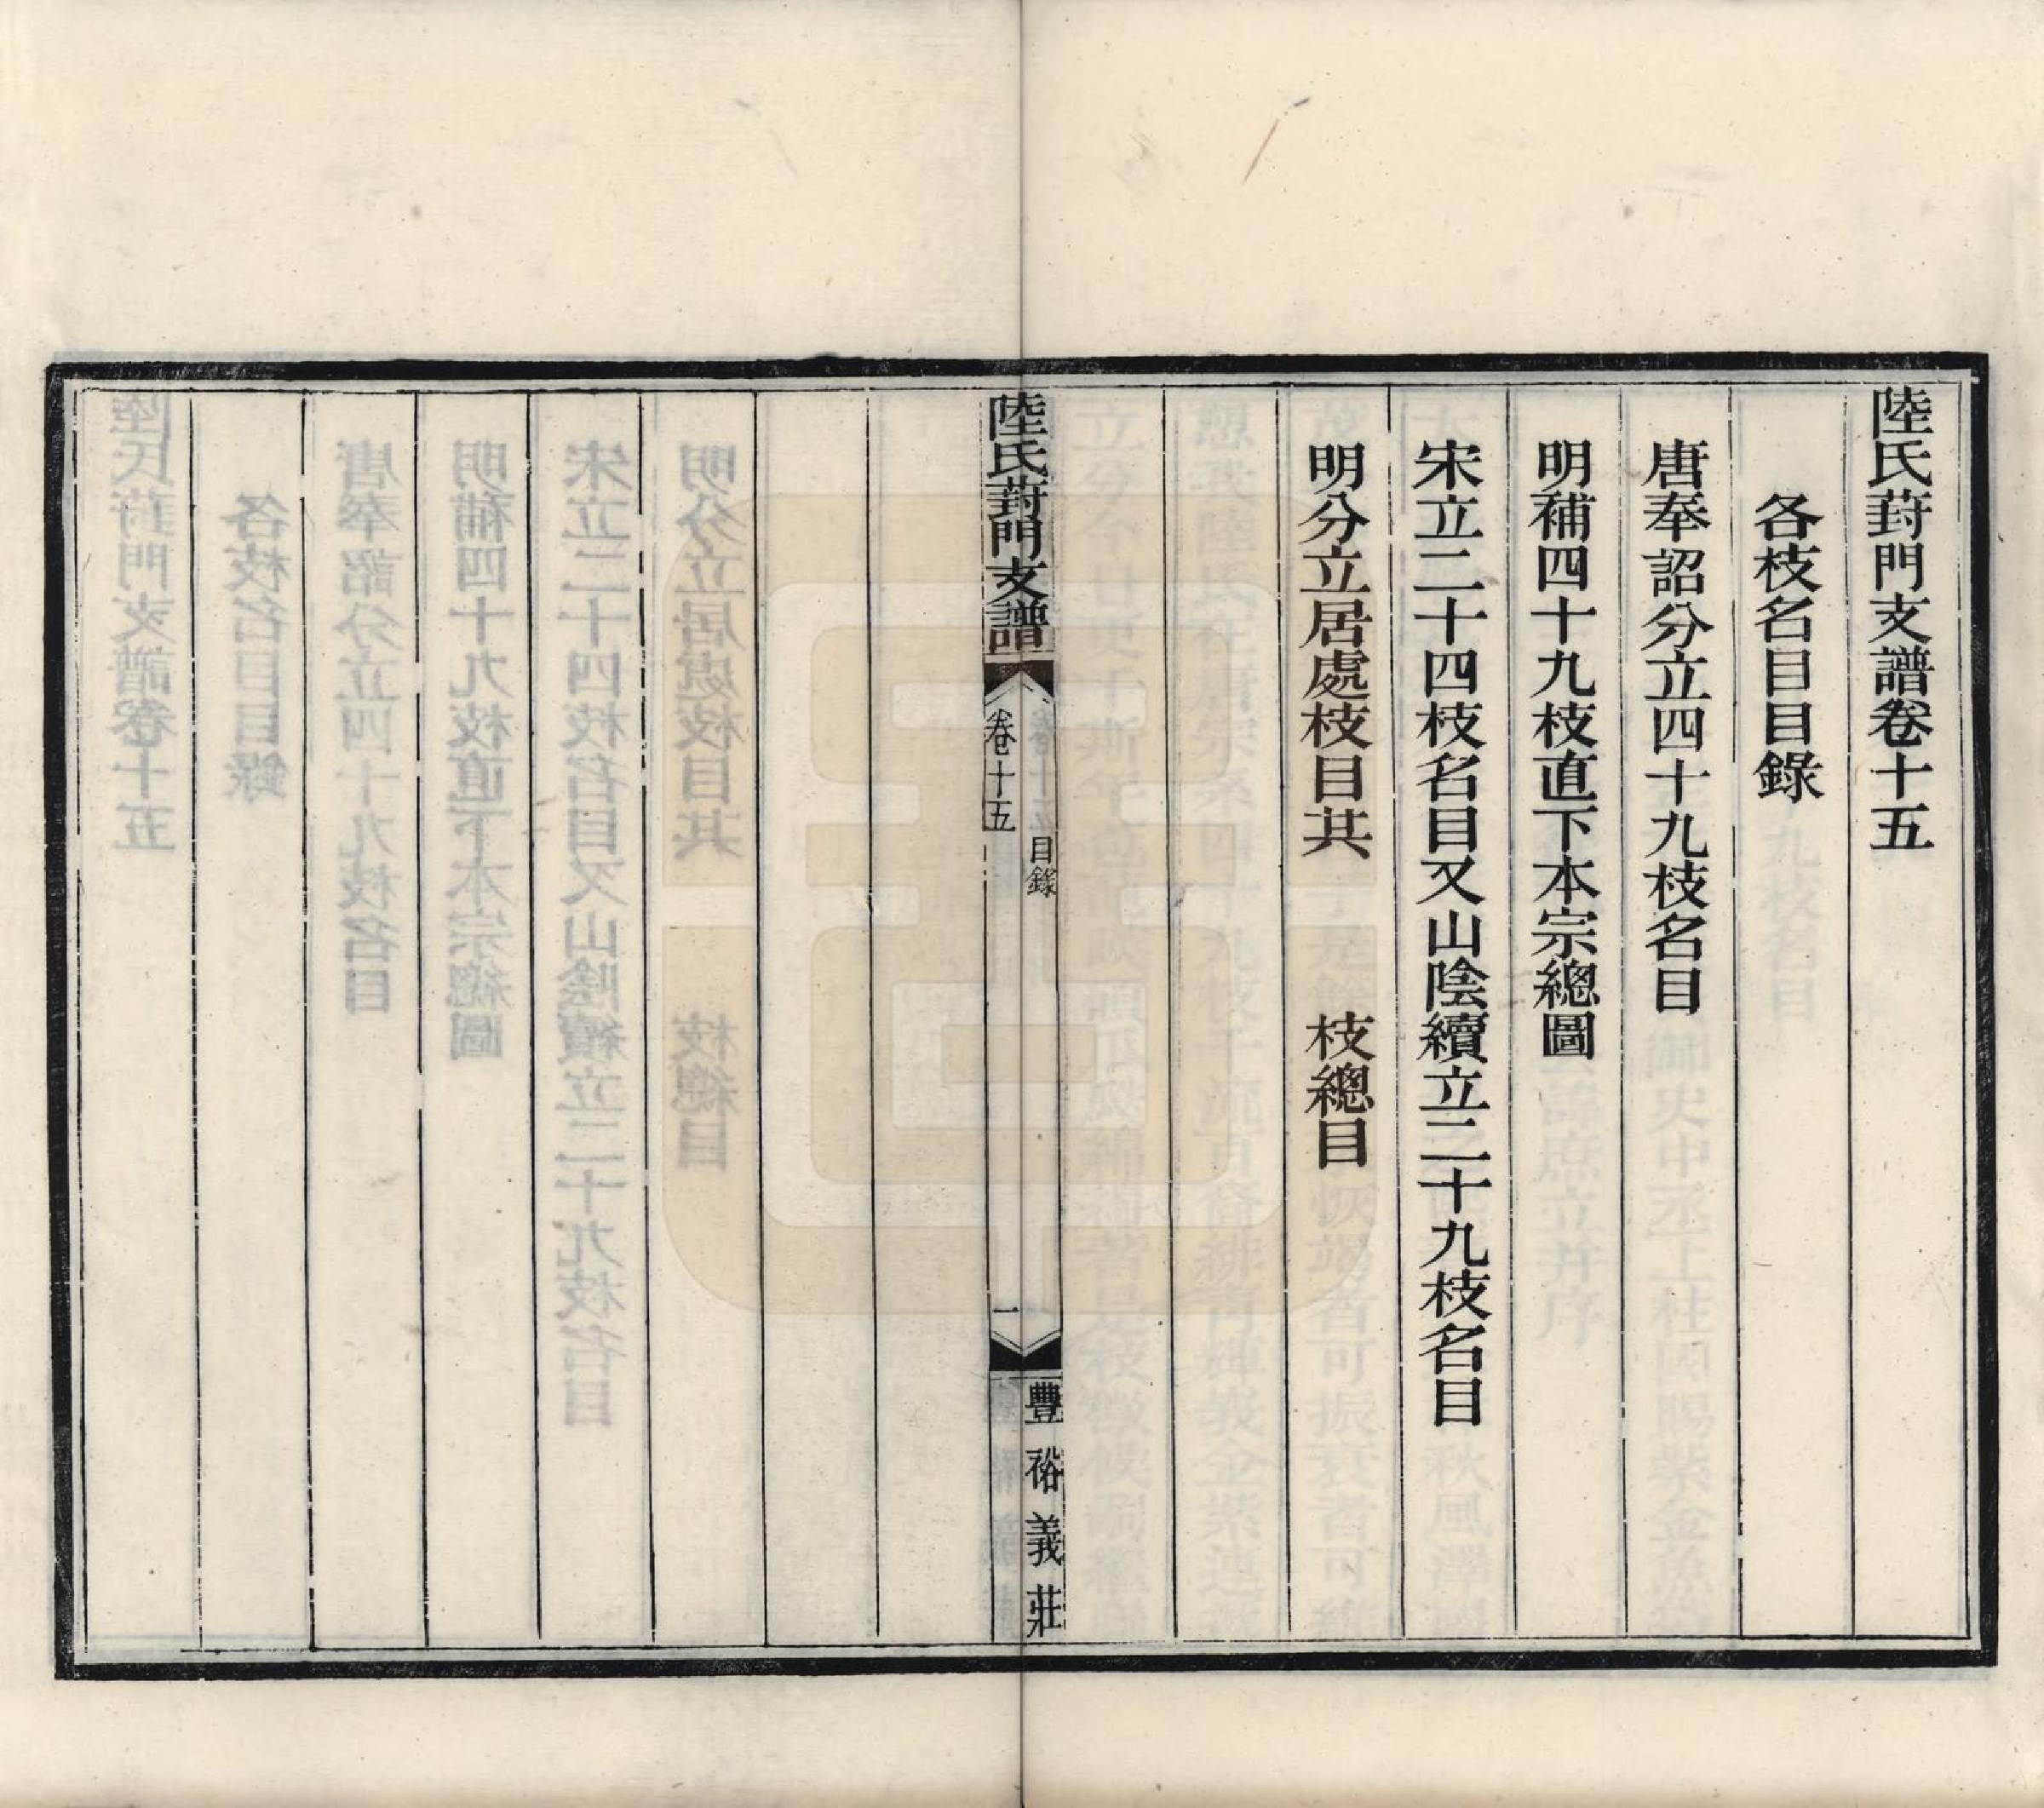 陸氏葑門支譜卷十五
各枝名目目錄
唐奉詔分立四十九枝名目
明補四十九枝直下本宗總圖
宋立二十四枝名目又山陰續立二十九枝名目
明分立居處枝目共　　　枝總目
陸氏葑門支譜
卷十五
目錄
一
豐裕義莊